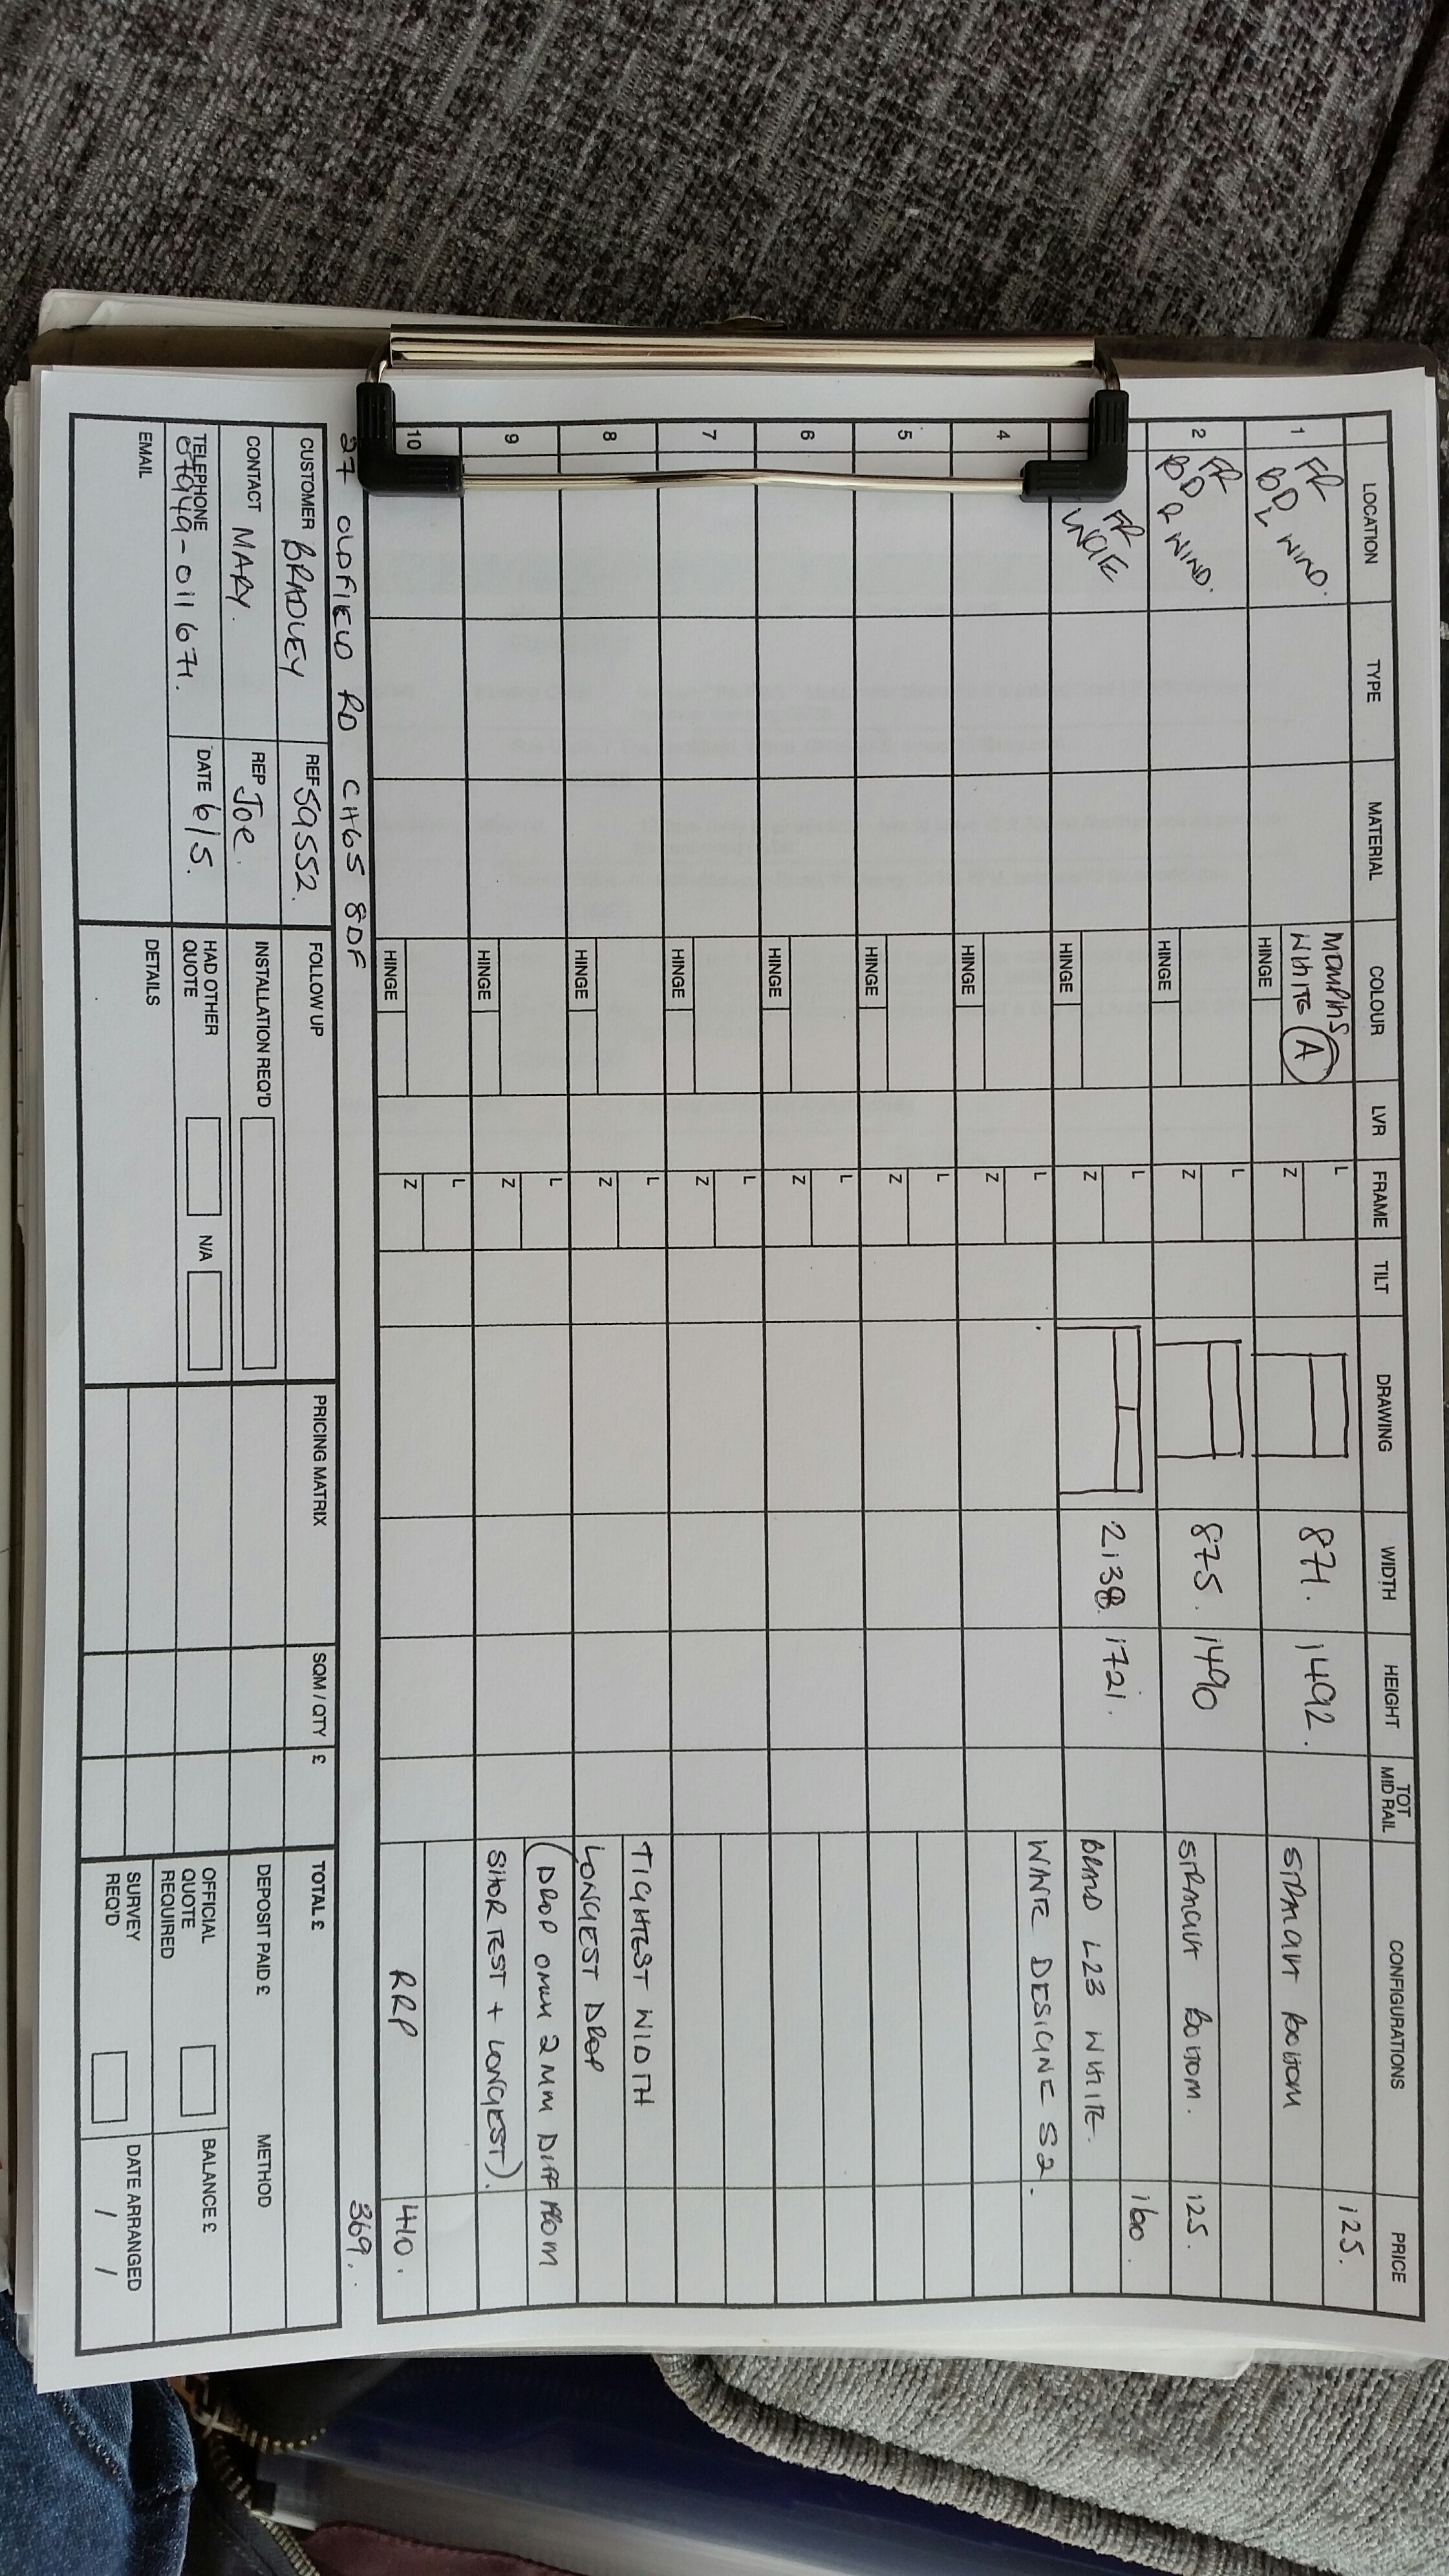 LOCATION TYPE MATERIAL COLOUR LVR FRAME TILT DRAWING WIDTH HEIGHT TOT MID RAIL CONFIGURATIONS PRICE
1 FR BD L WIND. WHITE A HINGE L Z 871. 1492. STRAIGHT BOTTOM 125.
2 FR BD R WIND. HINGE L Z 875. 1490 STRAIGHT BOTTOM. 125.
FR HINGE L Z 2138. 1721. 160.
L23 WHITE.
4 HINGE L Z WAVE DESIGNE S2.
5 HINGE L Z
6 HINGE L Z
7 HINGE L Z
8 HINGE L Z TIGHTEST WIDTH
LONGEST DROP
9 HINGE L Z (DROP 2MM DIFF FROM
+ LONGEST).
10 HINGE L Z
RRP 410.
27 OLDFIELD RD CH65 8DF 369.
CUSTOMER BRADLEY REF S9552. FOLLOW UP PRICING MATRIX SQM / QTY £ TOTAL £
CONTACT MARY. REP JOE. INSTALLATION REQ'D DEPOSIT PAID £ METHOD
TELEPHONE 07949-011671. DATE 6/5. HAD OTHER QUOTE N/A OFFICIAL QUOTE REQUIRED BALANCE £
EMAIL DETAILS SURVEY REQ'D DATE ARRANGED / /